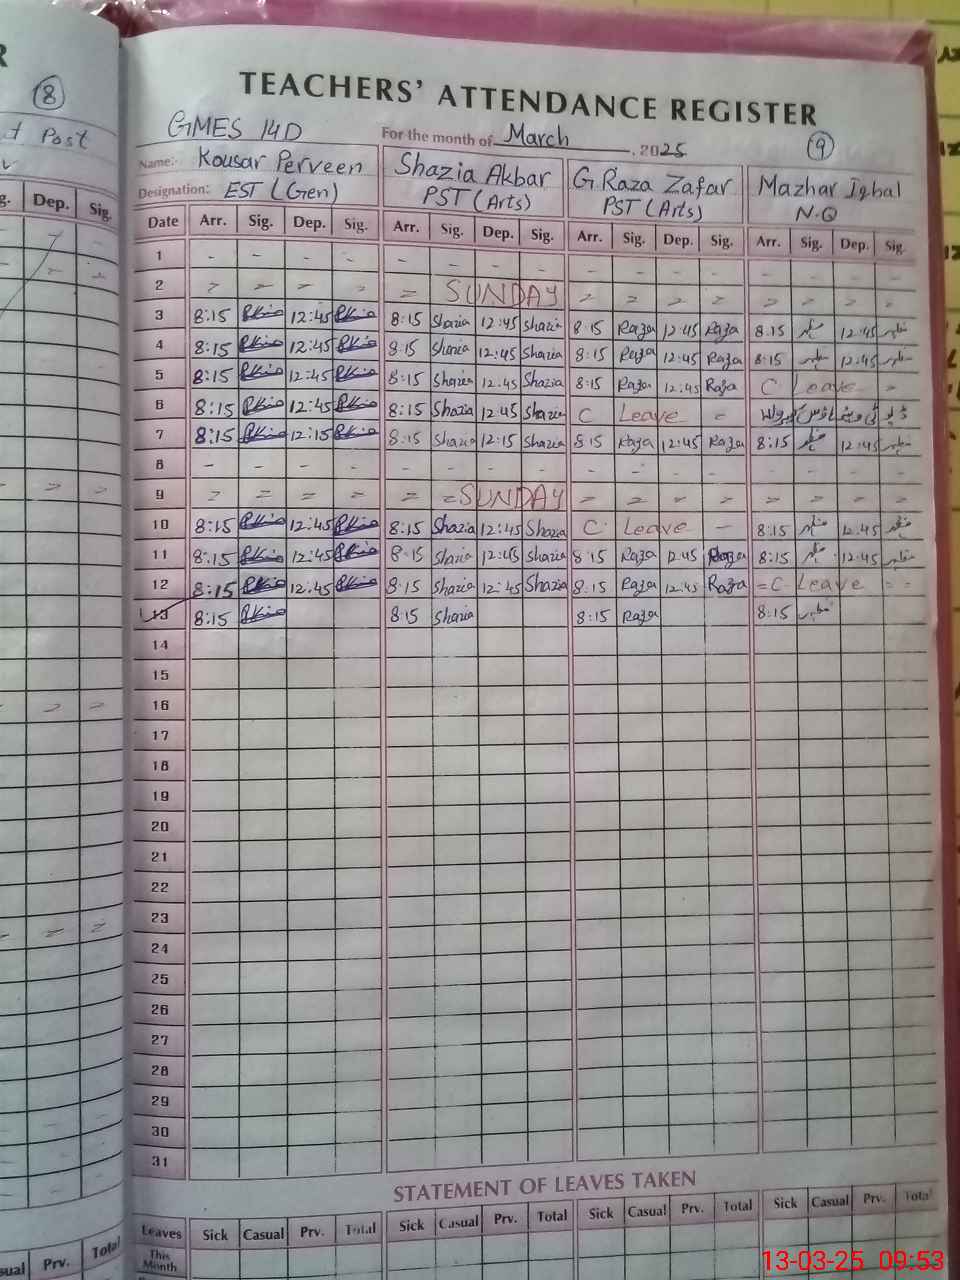 R
8
t Post
g. Dep. Sig.
TEACHERS' ATTENDANCE REGISTER
GMES 14D For the month of March, 2025 9
Name:- Kousar Perveen Shazia Akbar G. Raza Zafar Mazhar Iqbal
Designation: EST (Gen) PST (Arts) PST (Arts) N.Q
Date Arr. Sig. Dep. Sig. Arr. Sig. Dep. Sig. Arr. Sig. Dep. Sig. Arr. Sig. Dep. Sig.
1 - - - - - - - - - - - - - - - -
2 = = = = = SUNDAY = = = = = = = =
3 8:15 12:45 8:15 Shazia 12:45 Shazia 8:15 Raza 12:45 Raza 8:15 12:45
4 8:15 12:45 8:15 Shazia 12:45 Shazia 8:15 Raza 12:45 Raza 8:15 12:45
5 8:15 12:45 8:15 Shazia 12:45 Shazia 8:15 Raza 12:45 Raza C Leave =
6 8:15 12:45 8:15 Shazia 12:45 Shazia C Leave =
7 8:15 12:15 8:15 Shazia 12:15 Shazia 8:15 Raza 12:45 Raza 8:15 12:45
8 - - - - - - - - - - - - - - - -
9 = = = = = = SUNDAY = = = = = = = =
10 8:15 12:45 8:15 Shazia 12:45 Shazia C. Leave - 8:15 12:45
11 8:15 12:45 8:15 Shazia 12:45 Shazia 8:15 Raza 12:45 Raza 8:15 12:45
12 8:15 12:45 8:15 Shazia 12:45 Shazia 8:15 Raza 12:45 Raza = C Leave = =
13 8:15 8:15 Shazia 8:15 Raza 8:15
14
15
16
17
18
19
20
21
22
23
24
25
26
27
28
29
30
31
STATEMENT OF LEAVES TAKEN
Leaves Sick Casual Prv. Total Sick Casual Prv. Total Sick Casual Prv. Total Sick Casual Prv. Total
This Month
sual Prv. Total
13-03-25 09:53